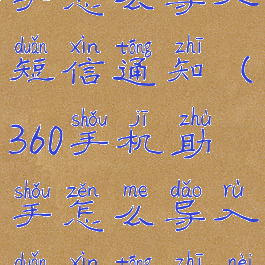 手怎么导入
duǎn xìn tōng zhī
短信通知（
shǒu jī zhù
360手机助
shǒu zěn me dǎo rù
手怎么导入
duǎn xìn tōng zhī nèi